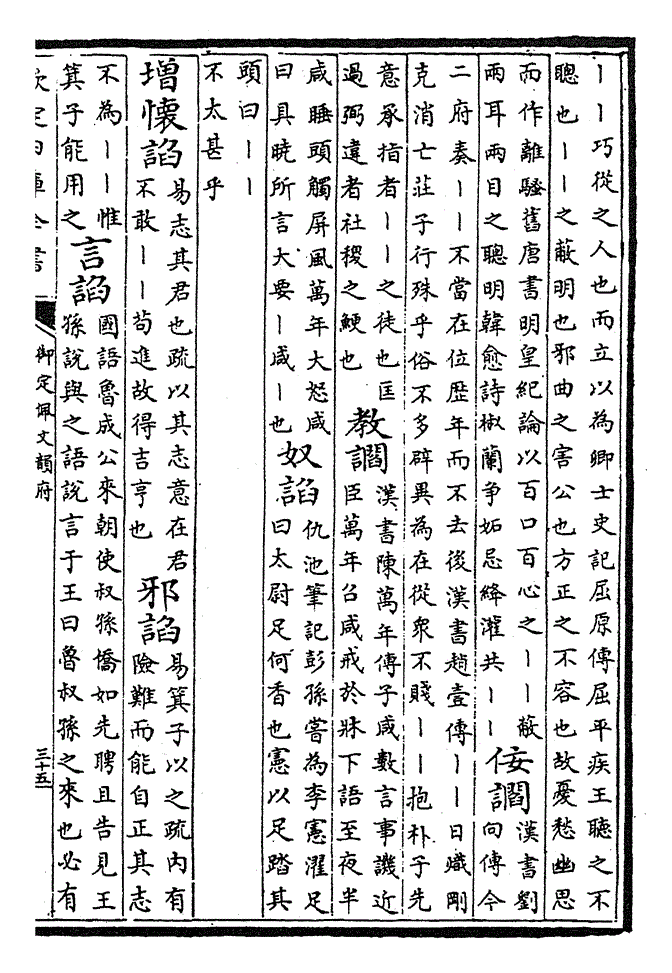 ｜｜巧從之人也而立以為卿士史記屈原傳屈平疾王聽之不
聰也｜｜之蔽明也邪曲之害公也方正之不容也故憂愁幽思
而作離騷舊唐書明皇紀論以百口百心之｜｜蔽
兩耳兩目之聰明韓愈詩椒蘭争妬忌絳灌共｜｜
佞讇
漢書劉
向傳今
二府奏｜｜不當在位歴年而不去後漢書趙壹傳｜｜日熾剛
克消亡莊子行殊乎俗不多辟異為在從衆不賤｜｜抱朴子先
意承指者｜｜之徒也匡
過弼違者社稷之鯁也
教讇
漢書陳萬年傳子咸數言事譏近
臣萬年召咸戒於牀下語至夜半
咸睡頭觸屏風萬年大怒咸
曰具曉所言大要｜咸｜也
奴諂
仇池筆記彭孫嘗為李憲濯足
曰太尉足何香也憲以足踏其
頭曰｜｜
不太甚乎
増懷諂
易志其君也疏以其志意在君
不敢｜｜苟進故得吉亨也
邪諂
易箕子以之疏内有
險難而能自正其志
不為｜｜惟
箕子能用之
言諂
國語魯成公來朝使叔孫僑如先聘且告見王
孫說與之語說言于王曰魯叔孫之來也必有
欽定四庫全書
御定佩文韻府
三十五